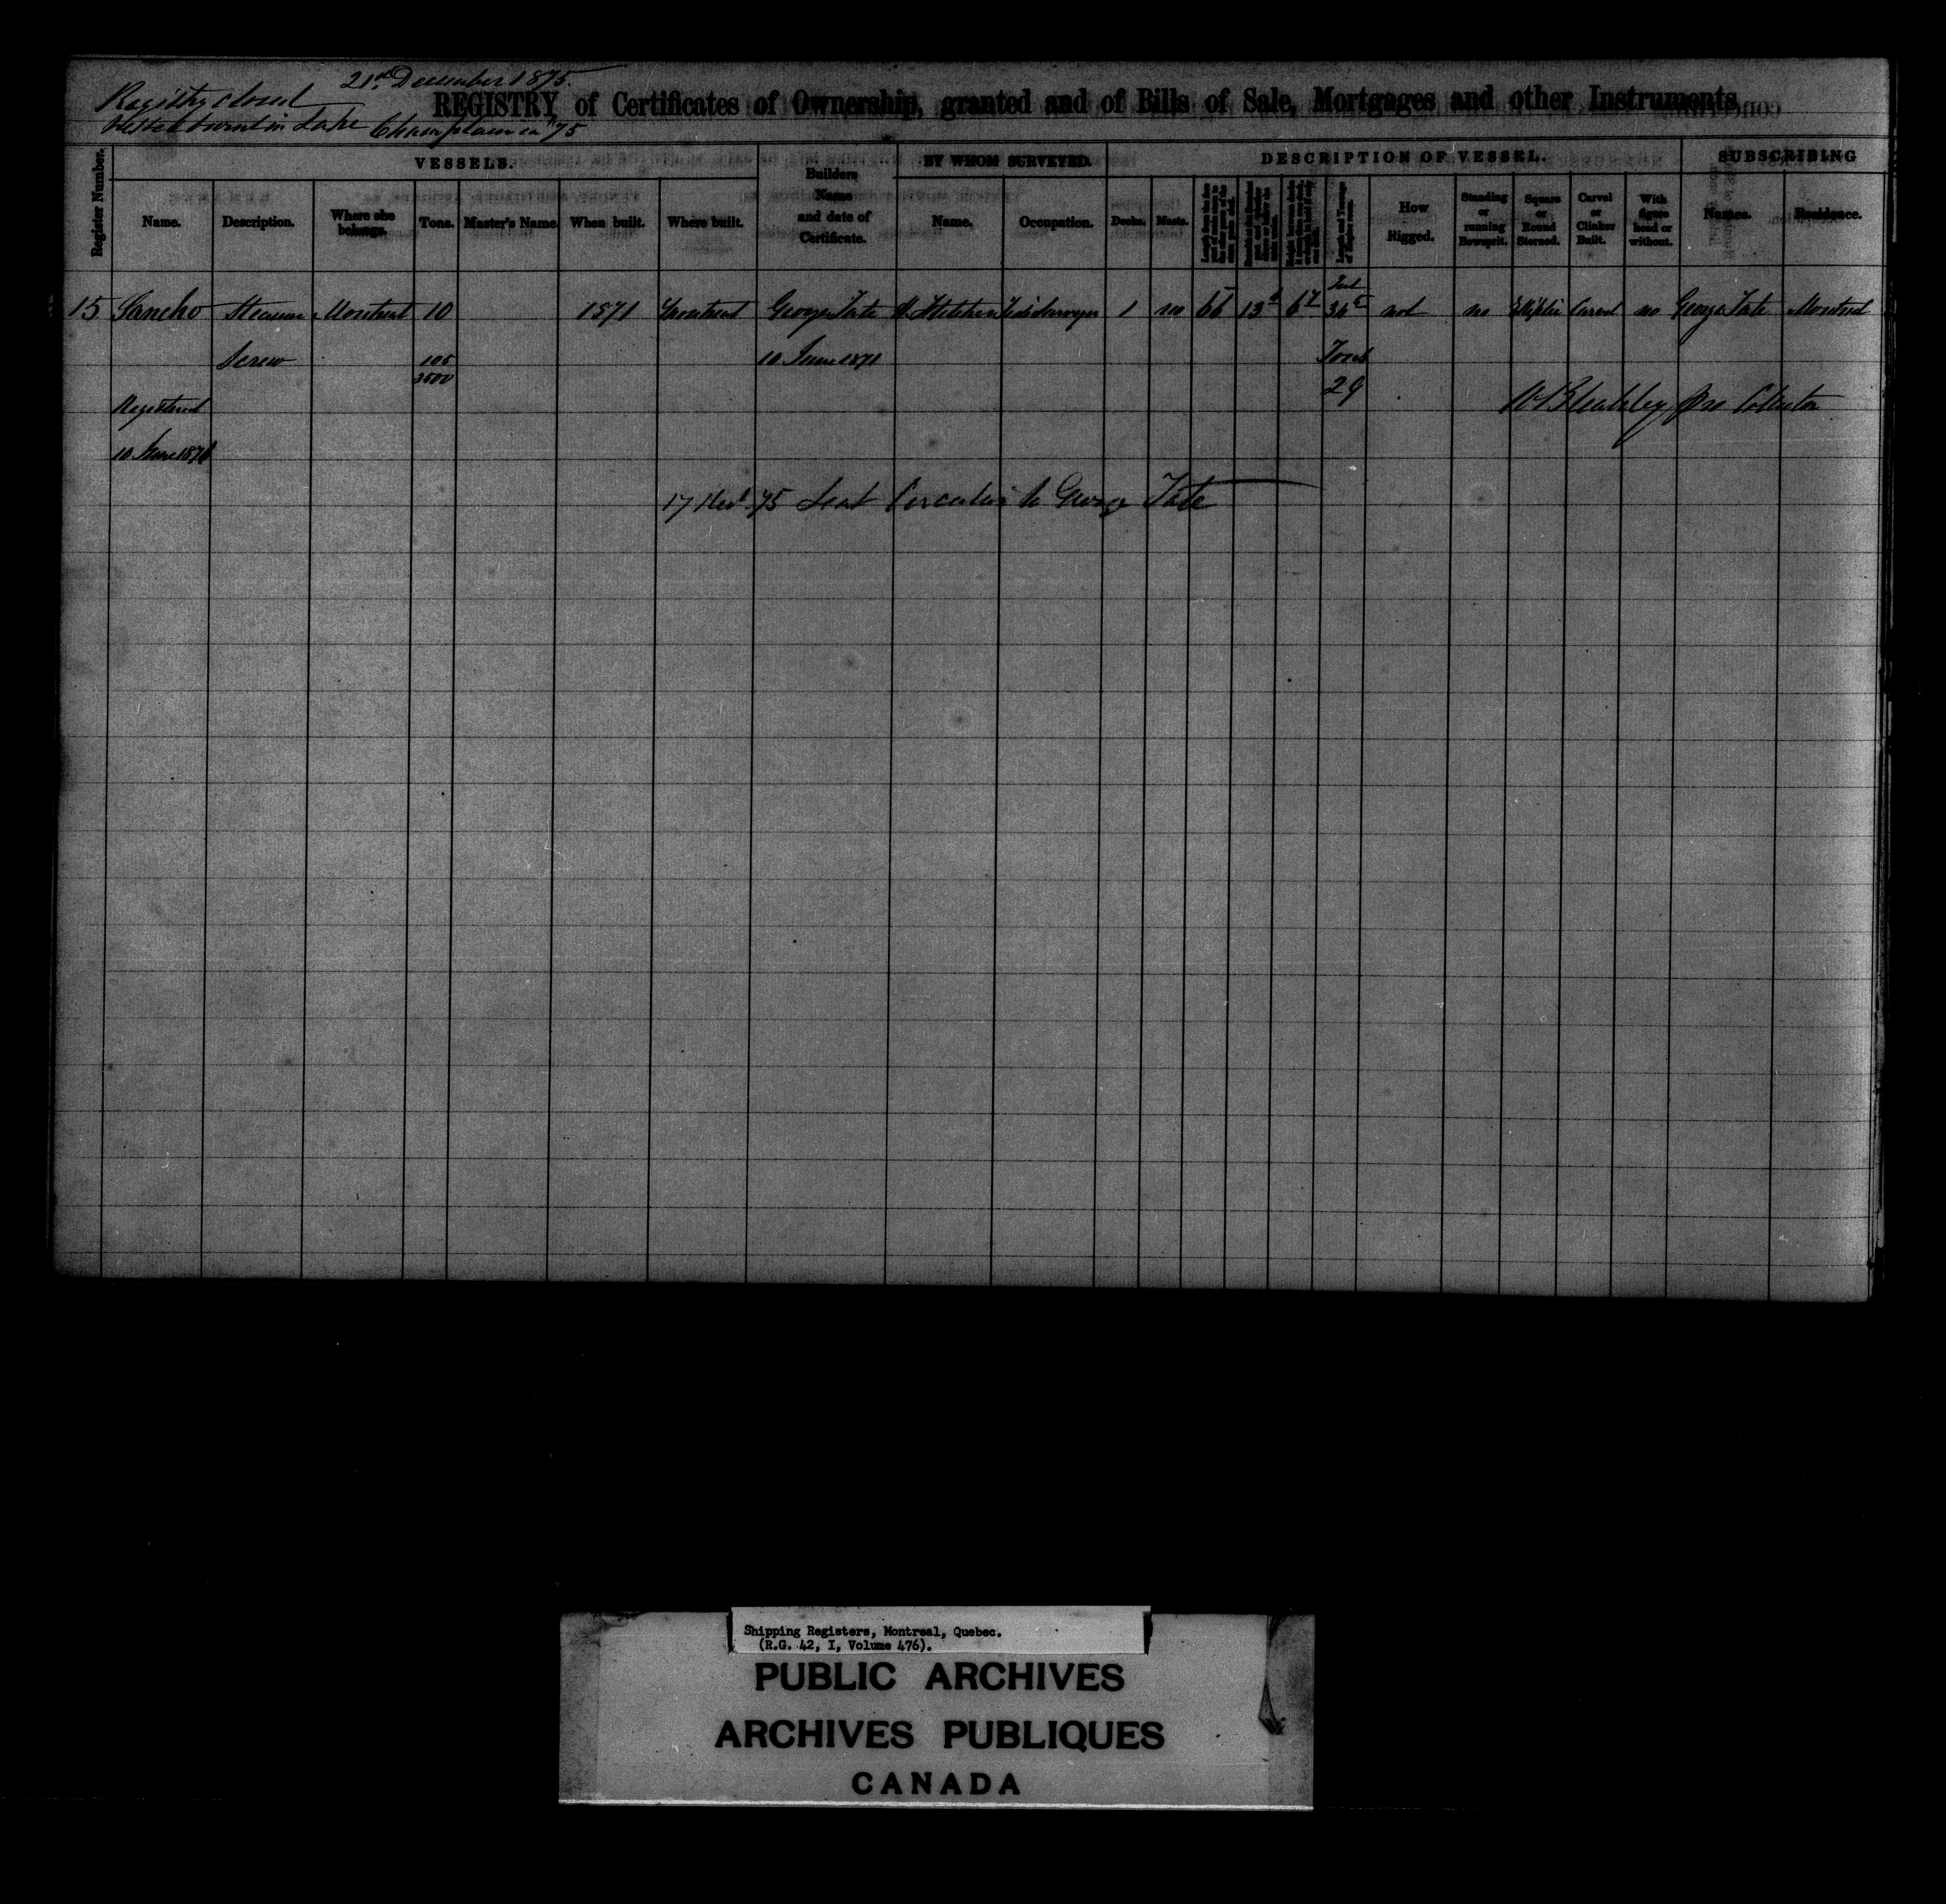 21st December 1875.
Registry closed
Vessel burnt in Lake Champlain in '75
REGISTRY of Certificates of Ownership, granted and of Bills of Sale, Mortgages and other Instruments
Register Number.
VESSELS.
Builders Name and date of Certificate.
BY WHOM SURVEYED.
DESCRIPTION OF VESSEL.
SUBSCRIBING
Name. Description. Where she belongs. Tons. Master's Name When built. Where built. Name. Occupation. Decks. Masts. How Rigged. Standing or running Bowsprit. Square or Round Sterned. Carvel or Clinker Built. With figure head or without. Names. Residence.
feet
15 Sancho Steamer Montreal 10 1871 Montreal George Tate 1 no 66 13 6 36 not no Elliptic Carvel no George Tate Montreal
Screw 10 June 1871 Tons
29
Registered
10 June 1871
pro Collector
17 75 Sent Circular to George Tate
Shipping Registers, Montreal, Quebec.
(R.G. 42, I, Volume 476).
PUBLIC ARCHIVES
ARCHIVES PUBLIQUES
CANADA